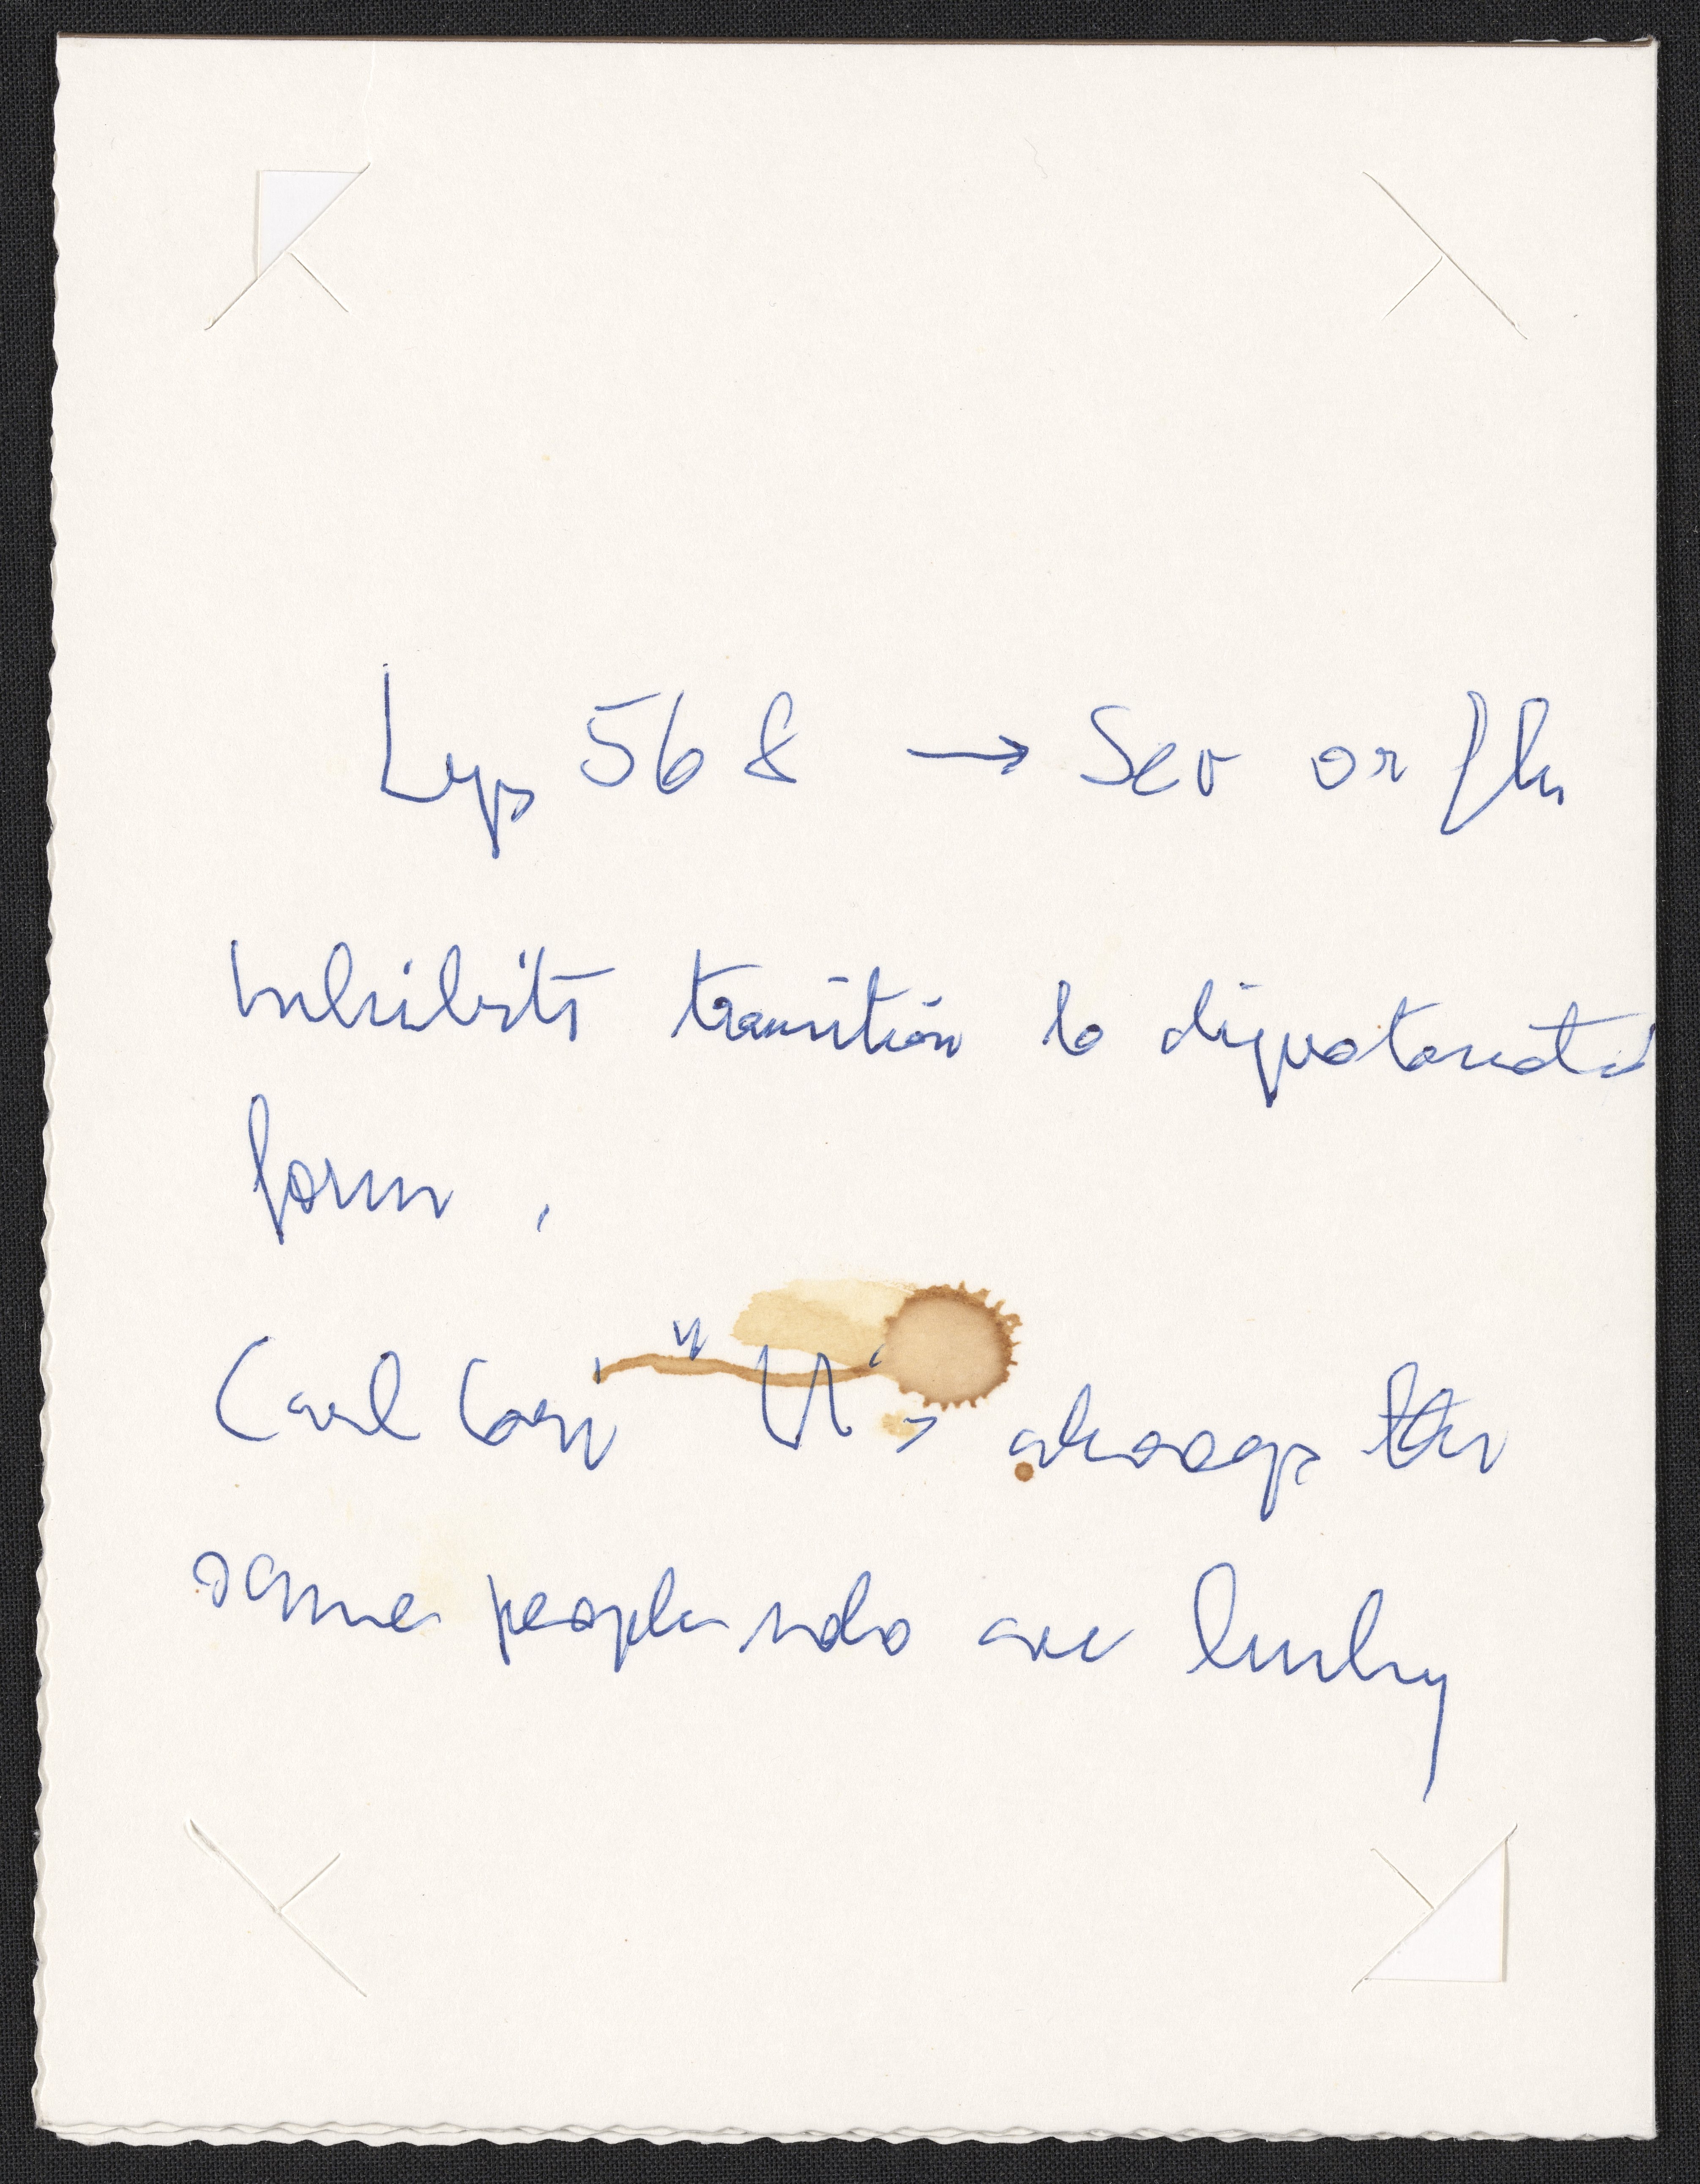 Lys 568 → Ser or
Inhibits transition to diprotonated
form.
Carl Cori "It is always the
same people who are lucky